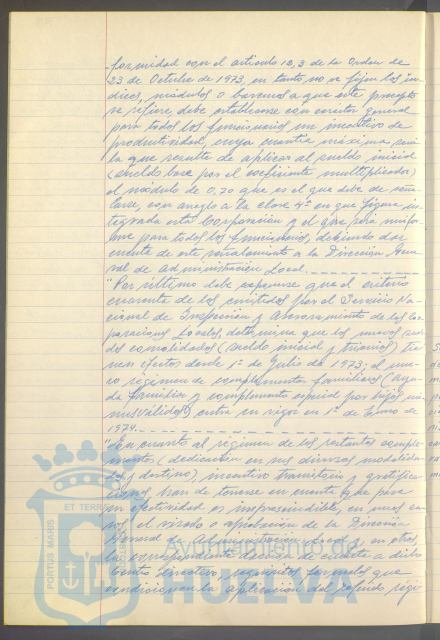 formidad con el artículo 12,3 de la Orden de
23 de Octubre de 1973, en tanto no se fijen los ín-
dices, módulos o baremos a que este precepto
se refiere, debe establecerse con carácter general
para todos los funcionarios un incentivo de
productividad, cuya cuantía máxima será
la que resulte de aplicar al sueldo inicial
(sueldo base por el coeficiente multiplicador)
el módulo de 0,70 que es el que debe de seña
larse, con arreglo a la clase 4ª en que figura in
tegrada esta Corporación y el que será unifor-
me para todos los funcionarios, debiendo dar
cuenta de este señalamiento a la Dirección Gene
ral de Administración Local.
"Por último debe exponerse que el criterio
emanante de los emitidos por el Servicio Na-
cional de Inspección y Asesoramiento de las Cor
poraciones Locales, determina que los nuevos suel
dos consolidados (sueldo inicial y trienios) tie
nen efectos desde 1º de Julio de 1973; el nue-
vo régimen de complementos familiares (ayu
da familiar y complemento especial por hijos mi
nusválidos) entra en vigor en 1º de Enero de
1974.
"En cuanto al régimen de los restantes comple-
mentos (dedicación en sus diversas modalida-
des y destino), incentivo transitorio y gratifica-
ciones, han de tenerse en cuenta que para
su efectividad es imprescindible, en unos ca
sos el visado o aprobación de la Dirección
General de Administración Local y, en otros,
la comunicación o dación de cuenta a dicho
Centro directivo, requisitos formales que
condicionan la aplicación del referido régi
ET TERR
PORTUS MARIS
CUSTODIA
Ayuntamiento de
HUELVA